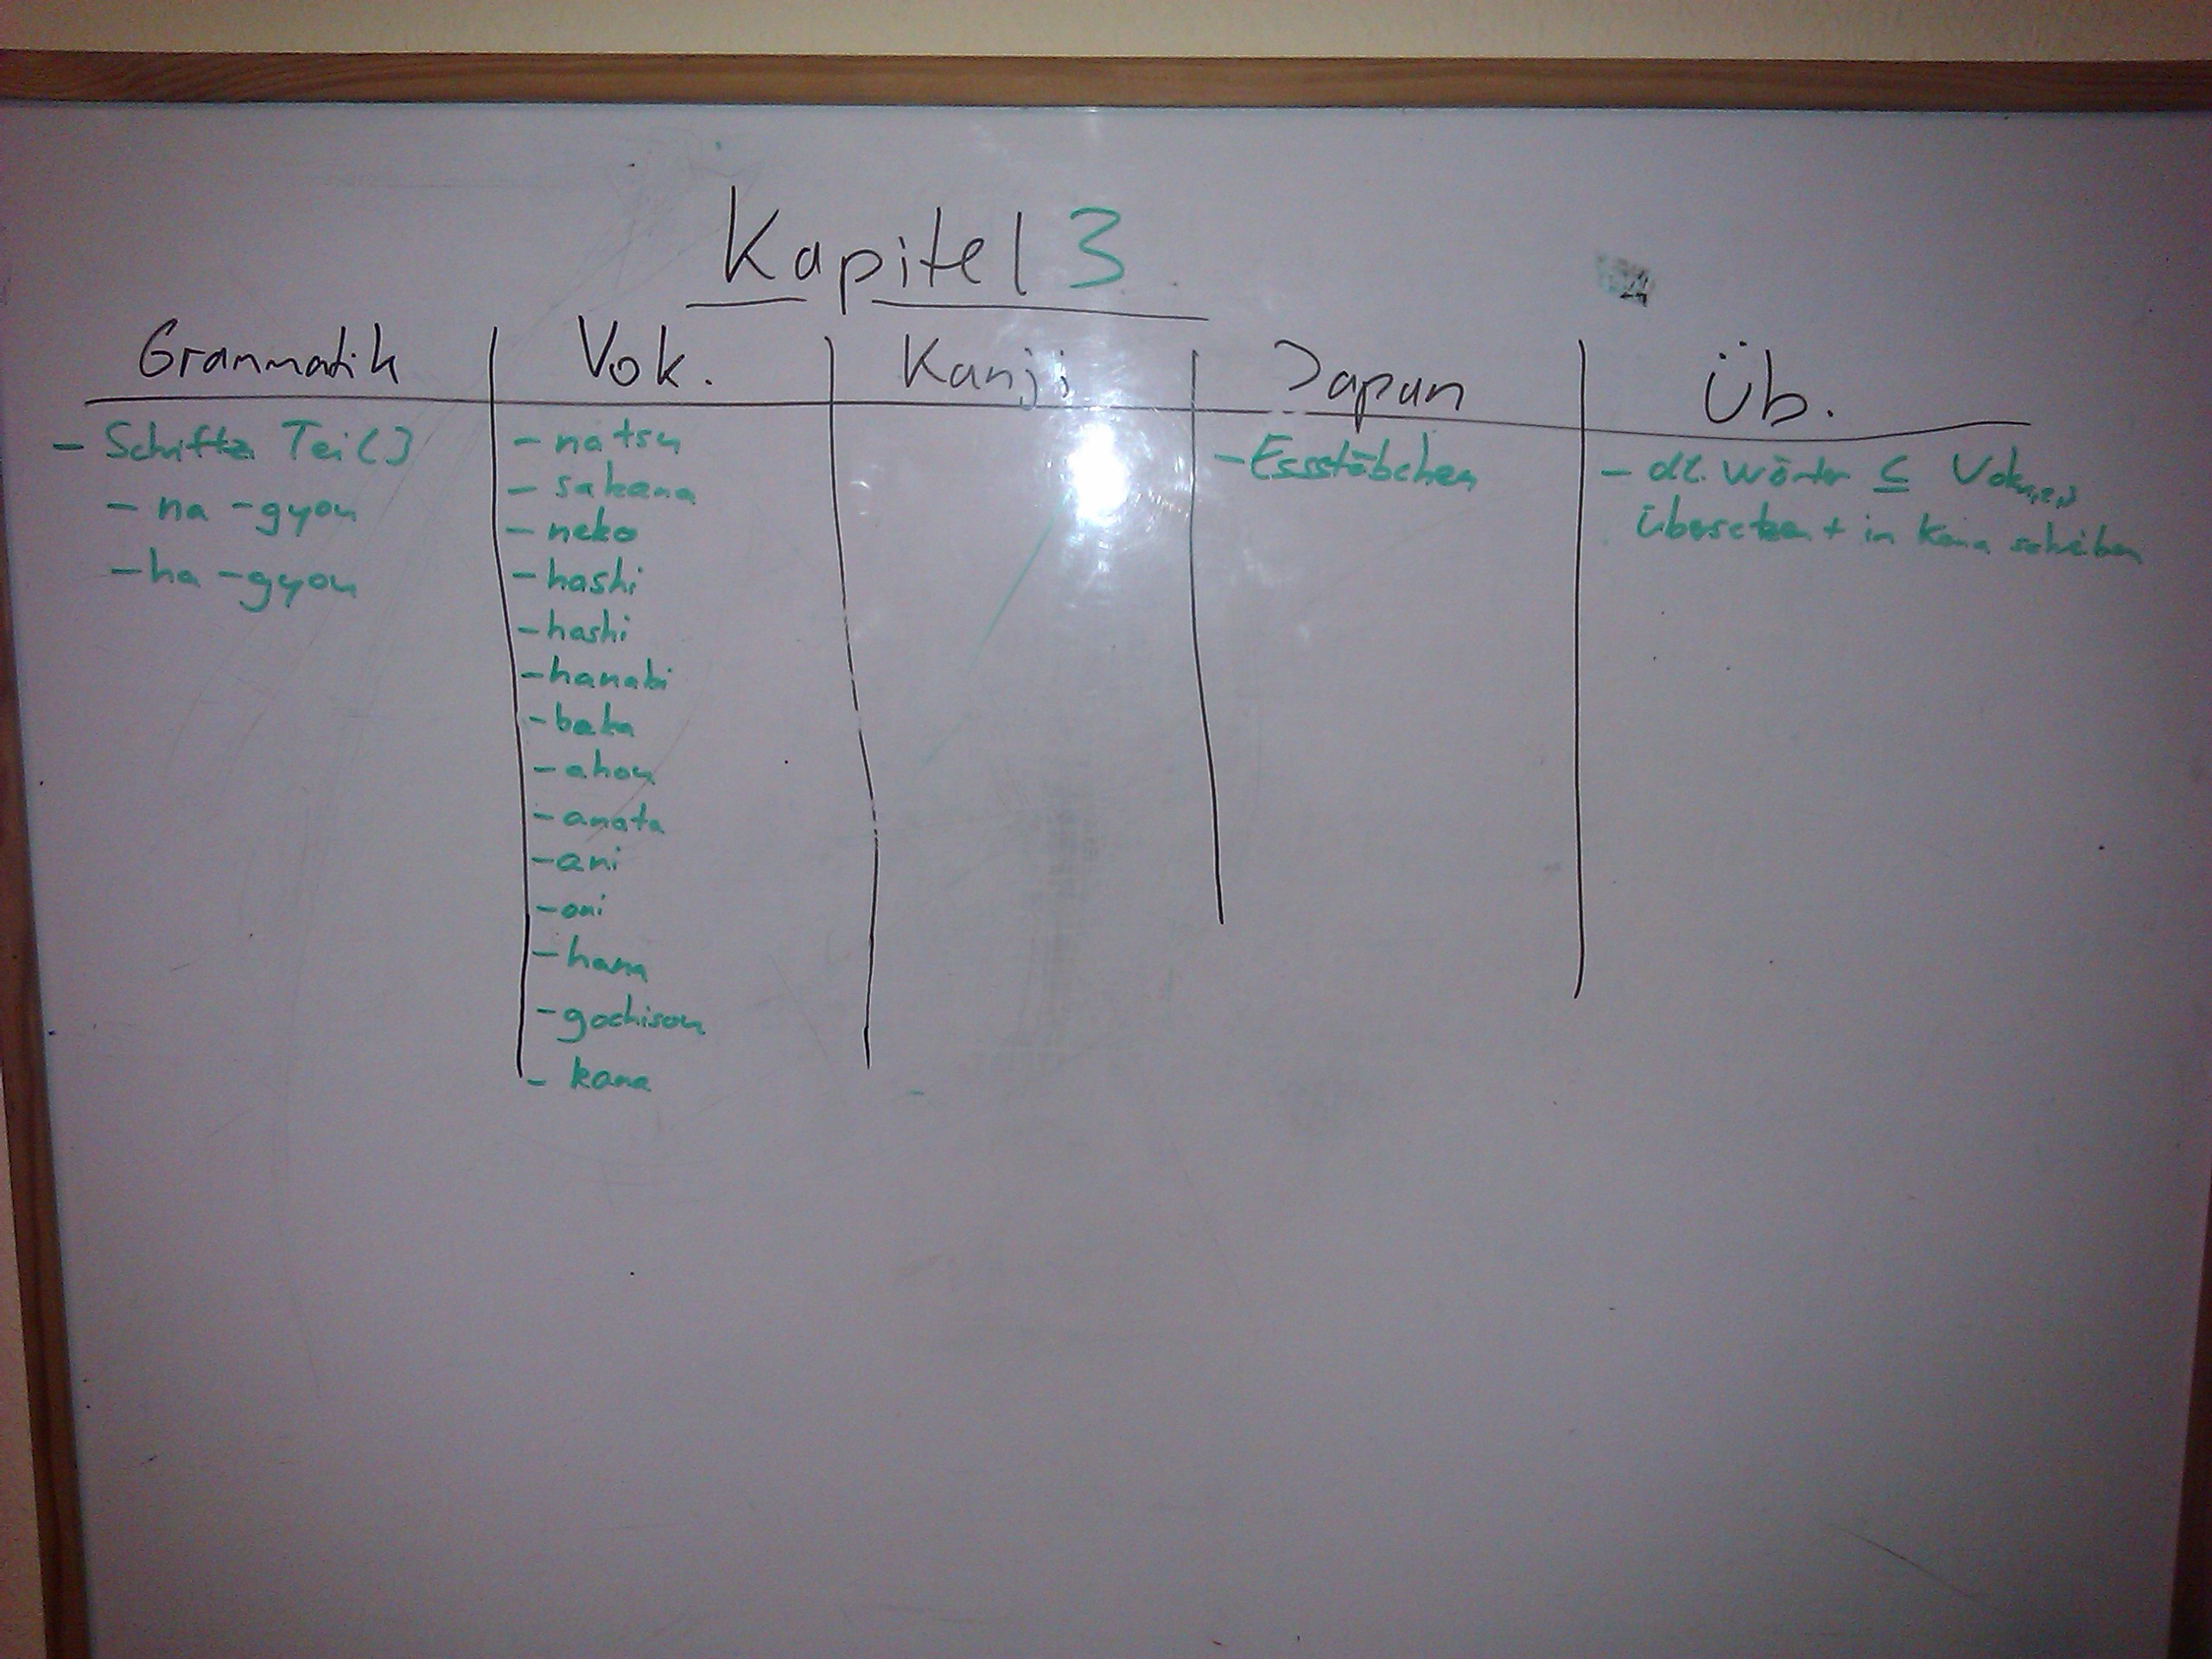 Kapitel 3
Grammatik
Vok.
Kanji
Japan
Üb.
- Schrift Teil 3
- na -gyou
- ha -gyou
- natsu
- sakana
- neko
- hashi
- hashi
- hanabi
- baka
- ahou
- anata
- ani
- oni
- hana
- gochisou
- kana
- Essstäbchen
- dt. Wörter ⊆ Vok1,2,3
übersetzen + in Kana schreiben